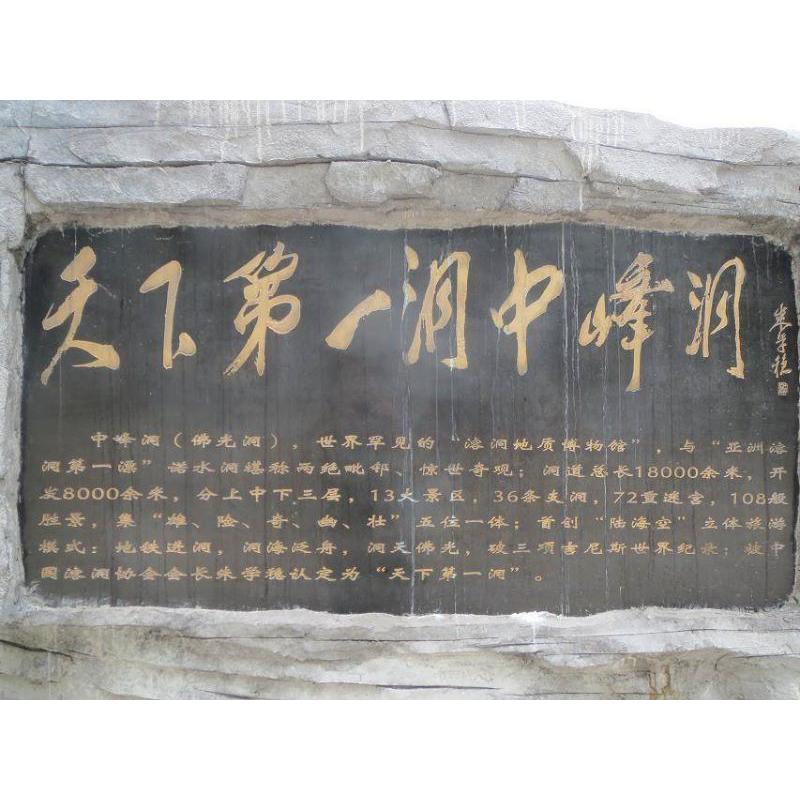 天下第一洞中峰洞
朱学稳
中峰洞（佛光洞），世界罕见的“溶洞地质博物馆”，与“亚洲溶
洞第一漂”诺水洞堪称两绝毗邻、惊世奇观；洞道总长18000余米，开
发8000余米，分上中下三层，13大景区，36条支洞，72重迷宫，108般
胜景，集“雄、险、奇、幽、壮”五位一体；首创“陆海空”立体旅游
模式：地铁进洞，洞海泛舟，洞天佛光，破三项吉尼斯世界纪录；被中
国溶洞协会会长朱学稳认定为“天下第一洞”。